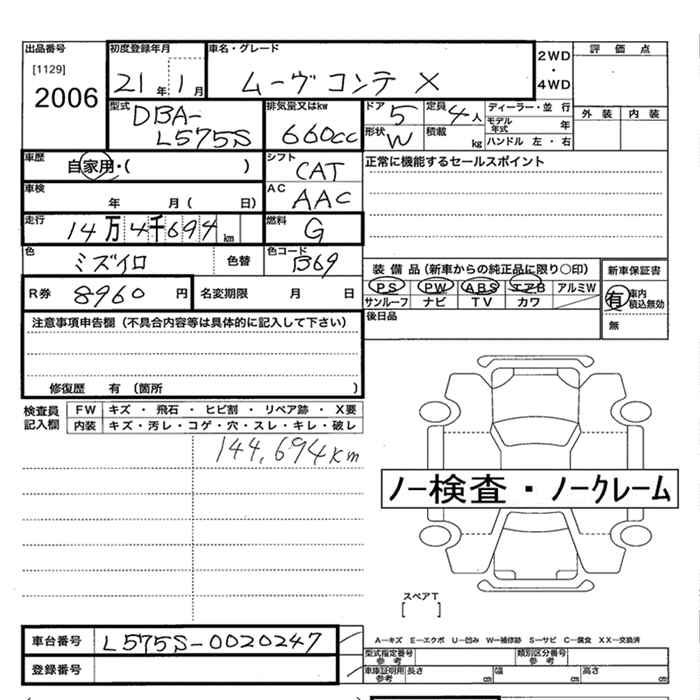 出品番号 初度登録年月 車名・グレード 評価点
[1129] 2WD
2006 21年 1月 ムーヴコンテ X ・
4WD
型式 排気量又はkw ドア 定員 ディーラー・並行 外装 内装
DBA- 5 4人 モデル年式 年
L575S 660cc 形状 W 積載 kg ハンドル 左・右
車歴 シフト 正常に機能するセールスポイント
自家用・( ) CAT
車検 AC
年 月( 日) AAC
走行 燃料
14万4千694km G
色 色コード
ミズイロ 色替 B69 装備品(新車からの純正品に限り○印) 新車保証書
R券 8960円 名変期限 月 日 PS PW ABS エアB アルミW 有 車内積込無効
サンルーフ ナビ TV カワ
注意事項申告欄(不具合内容等は具体的に記入して下さい) 後日品 無
修復歴 有(箇所 )
検査員 FW キズ・飛石・ヒビ割・リペア跡・X要
記入欄 内装 キズ・汚レ・コゲ・穴・スレ・キレ・破レ
144,694km
ノー検査・ノークレーム
スペアT
[ ]
車台番号 L575S-0020247 A—キズ E—エクボ U—凹み W—補修跡 S—サビ C—腐食 XX—交換済
型式指定番号 参考 類別区分番号 参考
登録番号 車庫証明用 参考 長さ cm 幅 cm 高さ cm